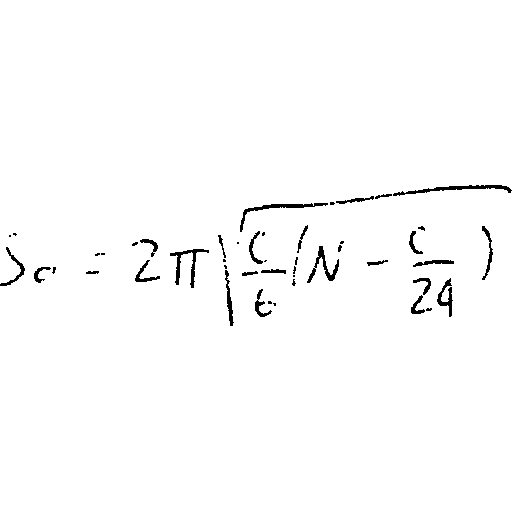 S_c = 2π√(c/6 (N - c/24))